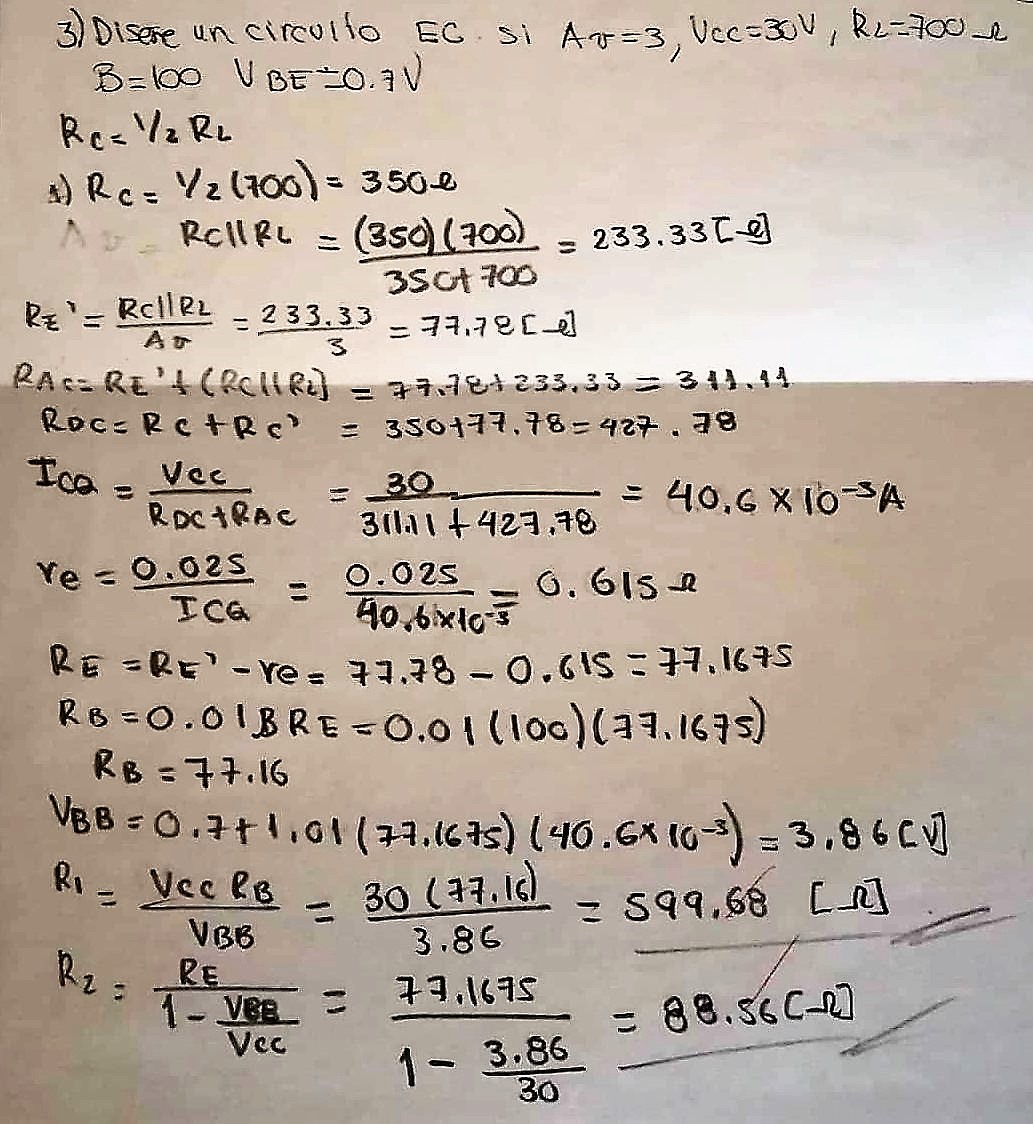 3) Diseñe un circuito EC si Av=3, Vcc=30V, RL=700 Ω
B=100 VBE=0.7V
Rc=1/2 RL
1) Rc= 1/2 (700)= 350Ω
Av = Rc||RL = (350)(700) / 350+700 = 233.33[Ω]
RE' = Rc||RL / Av = 233.33 / 3 = 77.78[Ω]
RAC= RE'+(Rc||RL) = 77.78+233.33=311.11
RDC= Rc+Rc' = 350+77.78=427.78
ICQ = Vcc / RDC+RAC = 30 / 311.11+427.78 = 40.6 x 10-3A
re = 0.025 / ICQ = 0.025 / 40.6x10-3 = 0.615Ω
RE =RE'-re= 77.78-0.615=77.1675
RB=0.01BRE=0.01(100)(77.1675)
RB=77.16
VBB=0.7+1.01(77.1675)(40.6x10-3)=3.86[V]
R1= Vcc RB / VBB = 30(77.16) / 3.86 = 599.68 [Ω]
R2= RE / 1-VBB/Vcc = 77.1675 / 1-3.86/30 = 88.56[Ω]